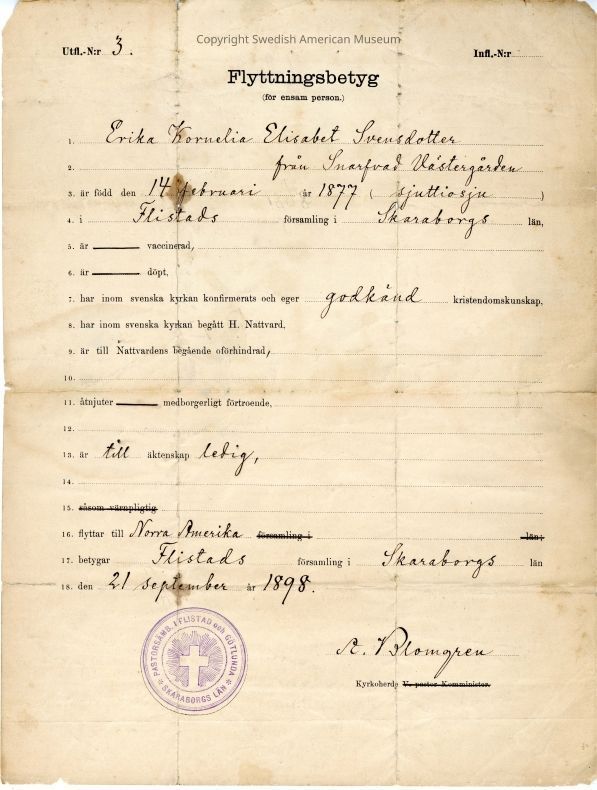 Copyright Swedish American Museum
Utfl.-N:r 3.
Infl.-N:r
Flyttningsbetyg
(för ensam person.)
1. Erika Kornelia Elisabet Svensdotter
2. från Snarfvad Västergården
3. är född den 14 februari år 1877 ( sjuttiosju )
4. i Flistads församling i Skaraborgs län,
5. är vaccinerad,
6. är döpt,
7. har inom svenska kyrkan konfirmerats och eger godkänd kristendomskunskap,
8. har inom svenska kyrkan begått H. Nattvard,
9. är till Nattvardens begående oförhindrad,
10.
11. åtnjuter medborgerligt förtroende,
12.
13. är till äktenskap ledig,
14.
15. såsom värnpligtig
16. flyttar till Norra Amerika församling i län;
17. betygar Flistads församling i Skaraborgs län
18. den 21 september år 1898.
PASTORSÄMB. I FLISTAD och GÖTLUNDA
SKARABORGS LÄN
A. Blomgren
Kyrkoherde V. pastor Komminister.